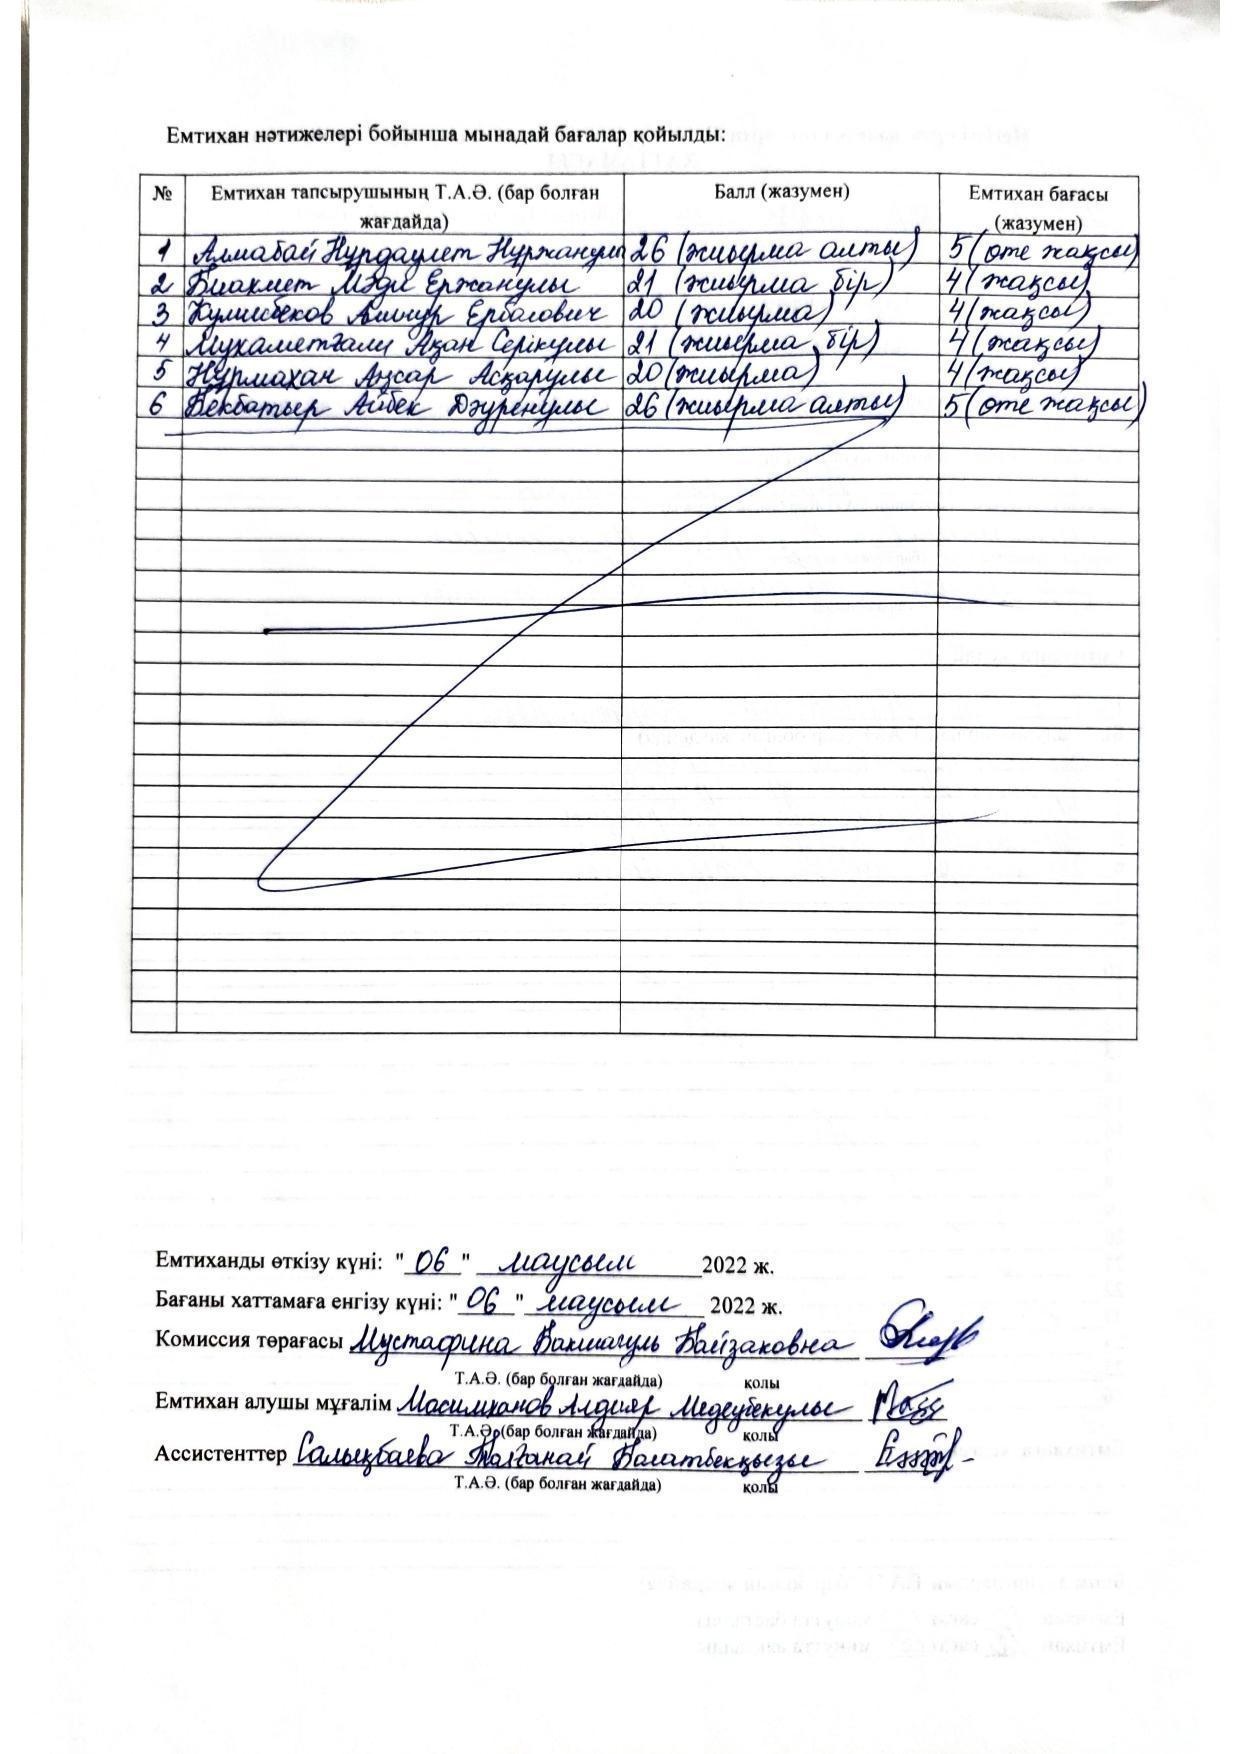 Емтихан нәтижелері бойынша мынадай бағалар қойылды:
№ Емтихан тапсырушының Т.А.Ә. (бар болған жағдайда) Балл (жазумен) Емтихан бағасы (жазумен)
1 Алмабай Нұрдаулет Нұржанұлы 26 (жиырма алты) 5 (өте жақсы)
2 Биахмет Мәди Ержанұлы 21 (жиырма бір) 4 (жақсы)
3 Кулшбеков Ерболович 20 (жиырма) 4 (жақсы)
4 Мұхаметғали Ақан Серікұлы 21 (жиырма бір) 4 (жақсы)
5 Нұрмахан Аңсар Асқарұлы 20 (жиырма) 4 (жақсы)
6 Бекбатыр Айбек Дәуренұлы 26 (жиырма алты) 5 (өте жақсы)
Емтиханды өткізу күні: "06" маусым 2022 ж.
Бағаны хаттамаға енгізу күні: "06" маусым 2022 ж.
Комиссия төрағасы Мустафина Бакшагуль Байзаковна
Т.А.Ә. (бар болған жағдайда) қолы
Емтихан алушы мұғалім Масимханов Алдияр Медеубекұлы
Т.А.Ә. (бар болған жағдайда) қолы
Ассистенттер Салықбаева Толғанай Болатбекқызы
Т.А.Ә. (бар болған жағдайда) қолы